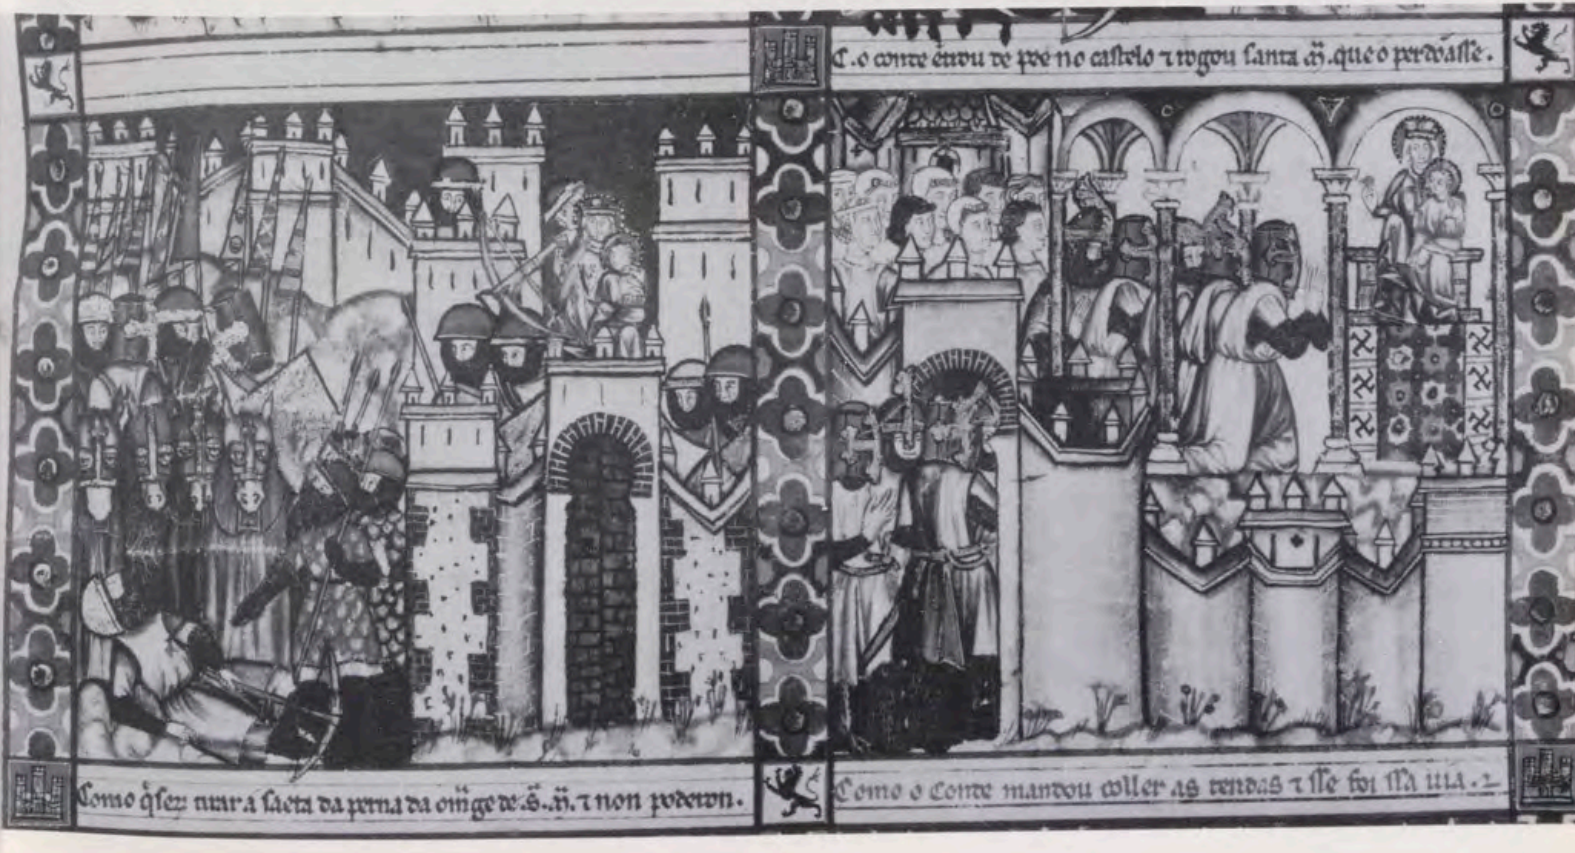 C. o conte ētrou de pee no castelo ⁊ rogou santa m̄. que o perdoasse.
Como q̄ser tirar a saeta da perna da om̄ge de .S̄. m̄. ⁊ non poderon.
Como o Conte mandou coller as tendas ⁊ sse foi ssa uia.